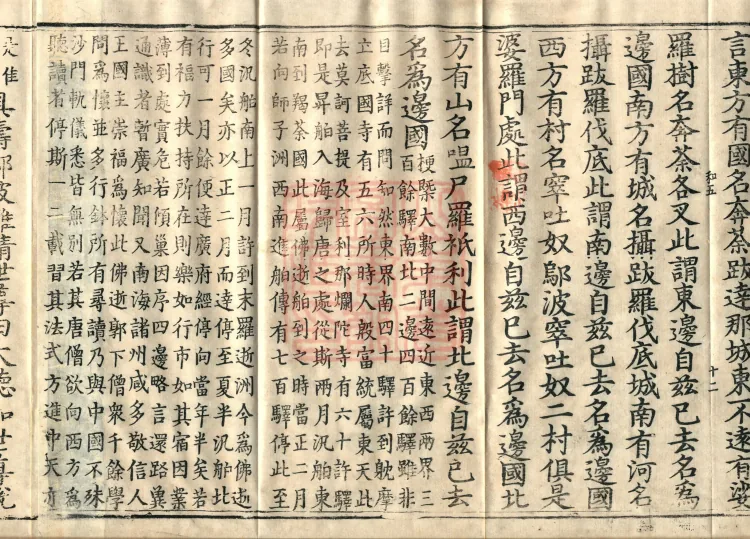 言東方有國名奔荼跋達那城東不遠有娑
羅樹名奔荼各叉此謂東邊自兹已去名爲
和五
十二
邊國南方有城名攝跋羅伐底城南有河名
攝跋羅伐底此謂南邊自兹已去名爲邊國
西方有村名窣吐奴鄔波窣吐奴二村俱是
婆羅門處此謂西邊自兹已去名爲邊國北
方有山名嗢尸羅祇利此謂北邊自兹已去
名爲邊國
梗槩大數中間遠近東西兩界三
百餘驛南北二邊四百餘驛雖非
目擊詳而問知然東界南四十驛許到躭摩
立底國寺有五六所時人殷富統屬東天此
去莫訶菩提及室利那爛陀寺有六十許驛
即是昇舶入海歸唐之處從斯兩月汎舶東
南到羯荼國此屬佛逝舶到之時當正二月
若向師子洲西南進舶傳有七百驛停此至
冬汎舶南上一月許到末羅逝洲今爲佛逝
多國矣亦以正二月而達停至夏半汎舶北
行可一月餘便達廣府經停向當年半矣若
有福力扶持所在則樂如行市如其宿因業
薄到處實危若傾巢因序四邊略言還路冀
通識者暫廣知聞又南海諸州咸多敬信人
王國主崇福爲懷此佛逝郭下僧衆千餘學
問爲懷並多行鉢所有尋讀乃與中國不殊
沙門軌儀悉皆無別若其唐僧欲向西方爲
聽讀者停斯一二載習其法式方進中天亦
是佳
具壽鄔波離請世尊曰大德如世尊說